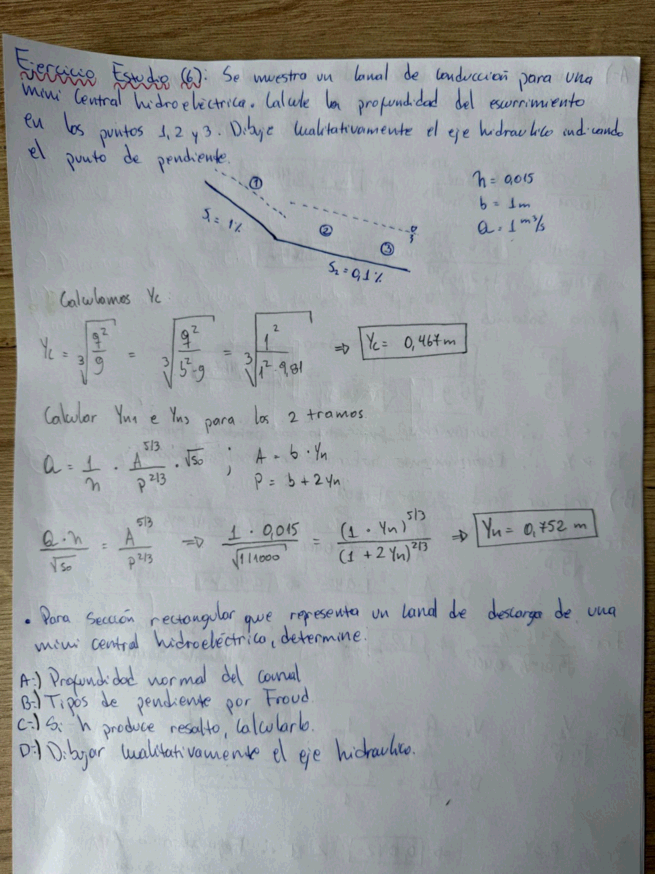 Ejercicio Estudio (6): Se muestra un Canal de conducción para una
mini Central hidroeléctrica. Calcule la profundidad del escurrimiento
en los puntos 1, 2 y 3. Dibuje cualitativamente el eje hidraulico indicando
el punto de pendiente.
n = 0,015
b = 1m
Q = 1 m³/s
①
S₁ = 1%
②
③
S₂ = 0,1%
Calculamos Yc:
Yc = ∛(q²/g) = ∛(q²/(b²·g)) = ∛(1²/(1²·9,81)) ⇒ Yc = 0,467 m
Calcular Yn1 e Yn3 para los 2 tramos
Q = 1/n · A^5/3 / P^2/3 · √So ; A = b · Yn
P = b + 2Yn
Q·n/√So = A^5/3 / P^2/3 ⇒ 1 · 0,015/√(1/1000) = (1 · Yn)^5/3 / (1 + 2Yn)^2/3 ⇒ Yn = 0,752 m
• Para Sección rectangular que representa un Canal de descarga de una
mini central hidroeléctrica, determine:
A:) Profundidad normal del canal
B:) Tipos de pendiente por Froud
C:) Si h produce resalto, Calcularlo.
D:) Dibujar cualitativamente el eje hidraulico.